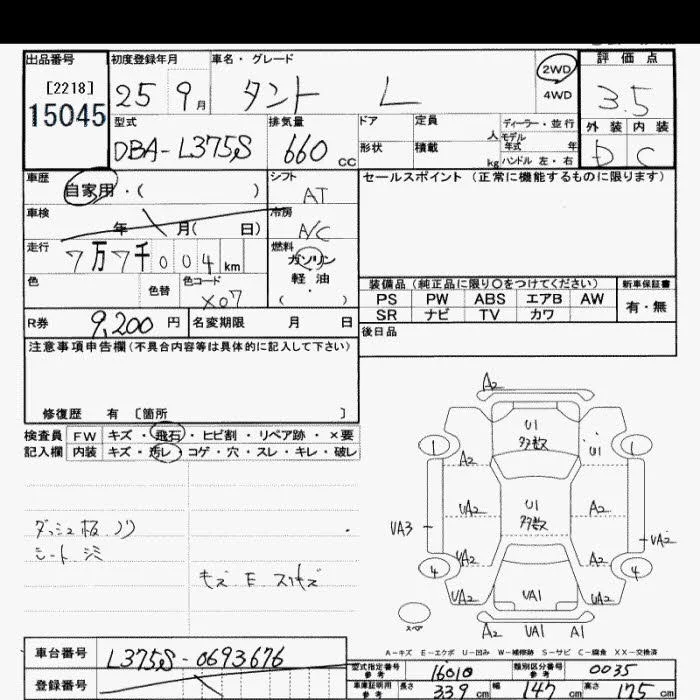 出品番号 初度登録年月 車名・グレード 2WD 評価点
[2218] 25 9月 タント L 4WD 3.5
15045
型式 排気量 ドア 定員 人 ディーラー・並行 外装 内装
DBA-L375S 660 CC 形状 積載 kg モデル年式 年 D C
ハンドル 左・右
車歴 自家用・( ) シフト AT セールスポイント (正常に機能するものに限ります)
車検 年 月( 日) 冷房 A/C
走行 7万7千004 km 燃料 ガソリン・軽油
( )
色 色替 色コード X07
装備品(純正品に限り○をつけてください) 新車保証書
PS PW ABS エアB AW 有・無
SR ナビ TV カワ
R券 9,200 円 名変期限 月 日 後日品
注意事項申告欄(不具合内容等は具体的に記入して下さい)
修復歴 有 〔箇所 〕
検査員 FW キズ・飛石・ヒビ割・リペア跡・×要
記入欄 内装 キズ・汚レ・コゲ・穴・スレ・キレ・破レ
A2
U1 多数
1 A2 U1 1
UA2 U1 多数 A2
UA3 UA2
UA2 A2
4 4
UA2 UA1 UA2
スペア
A2 UA1 A1
ダッシュ板 ノリ
シート シミ
キズ E スリキズ
A-キズ E-エクボ U-凹み W-補修跡 S-サビ C-腐食 XX-交換済
車台番号 L375S-0693676
登録番号
型式指定番号 参考 16010 類別区分番号 参考 0035
車庫証明用 参考 長さ 339 cm 幅 147 cm 高さ 175 cm